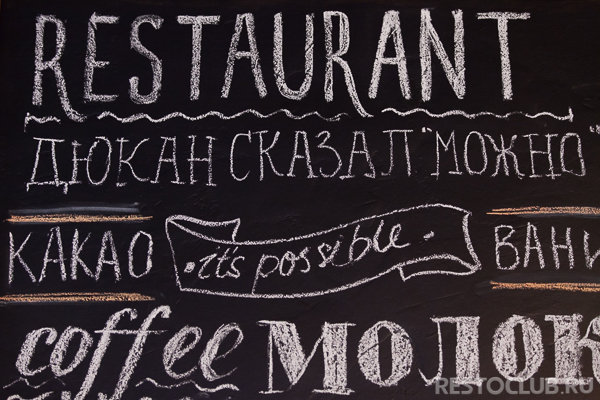 RESTAURANT
ДЮКАН СКАЗАЛ "МОЖНО"
КАКАО it's possible ВАНИ
coffee МОЛОК
RESTOCLUB.RU